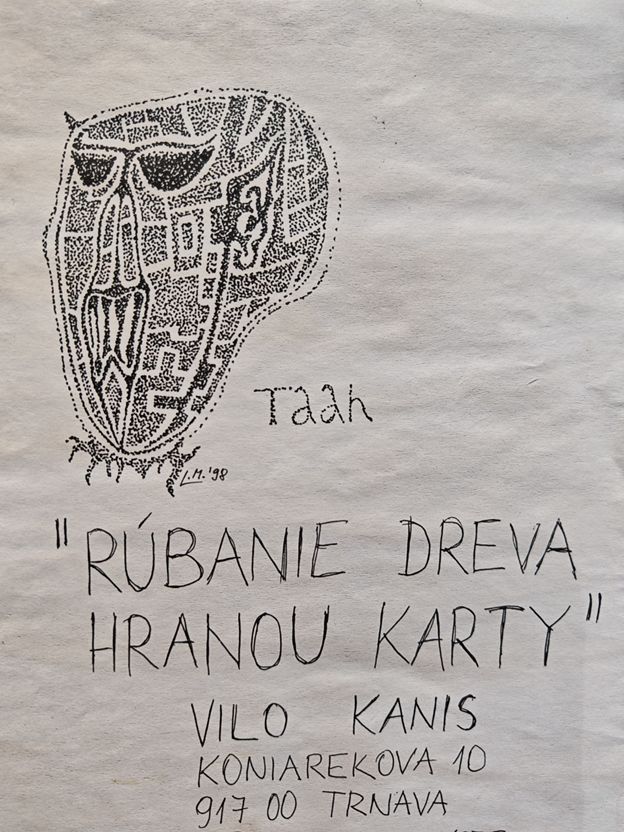 Taah
L.M.'98
"RÚBANIE DREVA
HRANOU KARTY"
VILO KANIS
KONIAREKOVA 10
917 00 TRNAVA